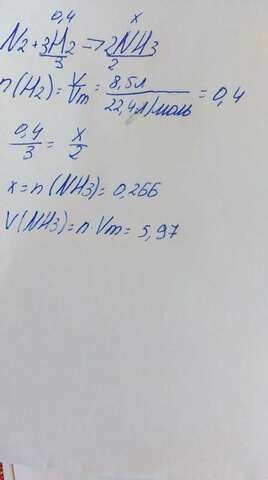 0,4 x
N2 + 3H2 → 2NH3
3 2
n(H2) = V/Vm = 8,5л/22,4л/моль = 0,4
0,4/3 = x/2
x = n(NH3) = 0,266
V(NH3) = n·Vm = 5,97